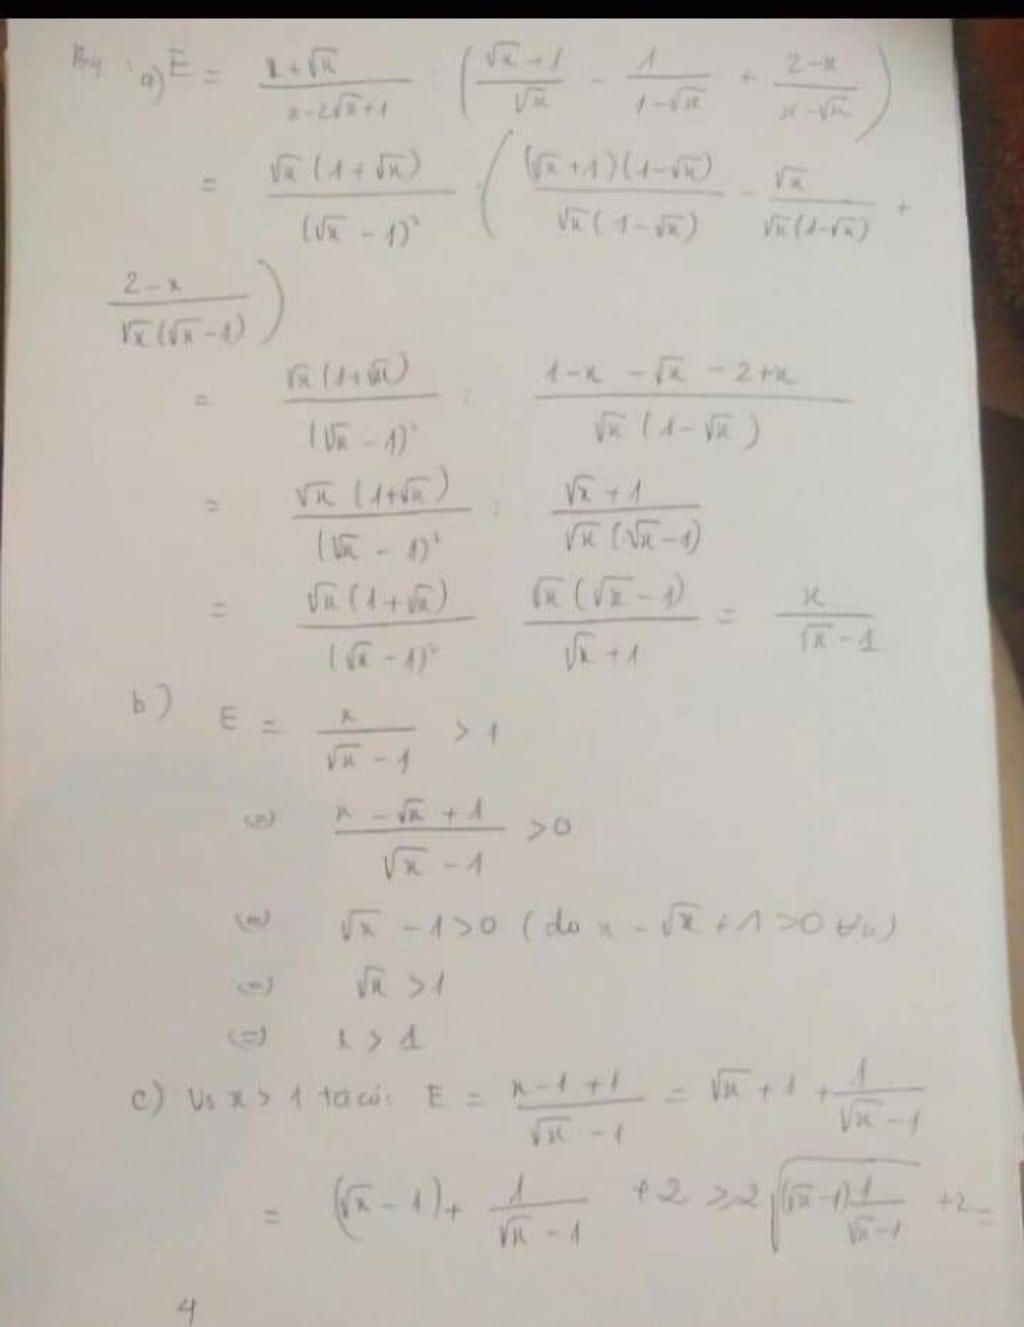 a) E = \frac{x+\sqrt{x}}{x-2\sqrt{x}+1} : \left( \frac{\sqrt{x}+1}{\sqrt{x}} - \frac{1}{1-\sqrt{x}} + \frac{2-x}{x-\sqrt{x}} \right)
= \frac{\sqrt{x}(1+\sqrt{x})}{(\sqrt{x}-1)^2} : \left( \frac{(\sqrt{x}+1)(1-\sqrt{x})}{\sqrt{x}(1-\sqrt{x})} - \frac{\sqrt{x}}{\sqrt{x}(1-\sqrt{x})} +
\frac{2-x}{\sqrt{x}(\sqrt{x}-1)} \right)
= \frac{\sqrt{x}(1+\sqrt{x})}{(\sqrt{x}-1)^2} : \frac{1-x-\sqrt{x}-2+x}{\sqrt{x}(1-\sqrt{x})}
= \frac{\sqrt{x}(1+\sqrt{x})}{(\sqrt{x}-1)^2} : \frac{\sqrt{x}+1}{\sqrt{x}(\sqrt{x}-1)}
= \frac{\sqrt{x}(1+\sqrt{x})}{(\sqrt{x}-1)^2} \frac{\sqrt{x}(\sqrt{x}-1)}{\sqrt{x}+1} = \frac{x}{\sqrt{x}-1}
b) E = \frac{x}{\sqrt{x}-1} > 1
(=) \frac{x-\sqrt{x}+1}{\sqrt{x}-1} > 0
(=) \sqrt{x}-1 > 0 (do x-\sqrt{x}+1 > 0 ∀x)
(=) \sqrt{x} > 1
(=) x > 1
c) Vs x > 1 ta có: E = \frac{x-1+1}{\sqrt{x}-1} = \sqrt{x}+1+\frac{1}{\sqrt{x}-1}
= (\sqrt{x}-1)+\frac{1}{\sqrt{x}-1} +2 ≥ 2\sqrt{(\sqrt{x}-1)\frac{1}{\sqrt{x}-1}} +2 =
4